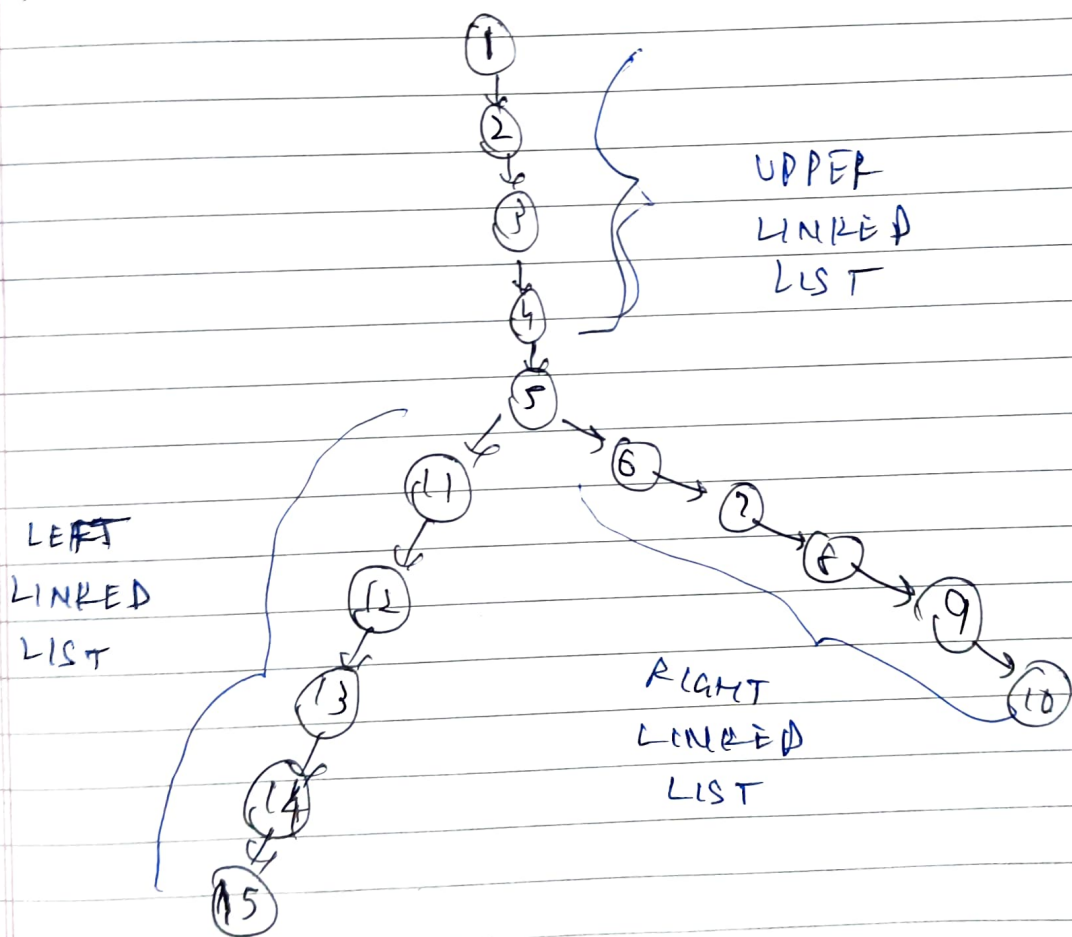 1
2
3
4
5
UPPER
LINKED
LIST
6
7
8
9
10
11
12
13
14
15
LEFT
LINKED
LIST
RIGHT
LINKED
LIST